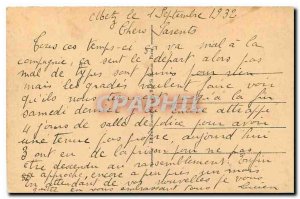 Metz le 1 Septembre 1932
Chers Parents
Tous ces temps-ci ça va mal à la
compagnie, ça sent le départ, alors pas
mal de types sont punis pour rien
mais les gradés veulent faire voir
qu'ils nous à la fin
samedi dernier attrapé
4 jours de salle de police pour avoir
une tenue pas propre, aujourd'hui
3 ont eu de la prison pour ne pas
être descendu au rassemblement. Enfin
ça approche, encore à peu près un mois
En attendant de vos nouvelles je vous
en vous embrassant tous Lucien